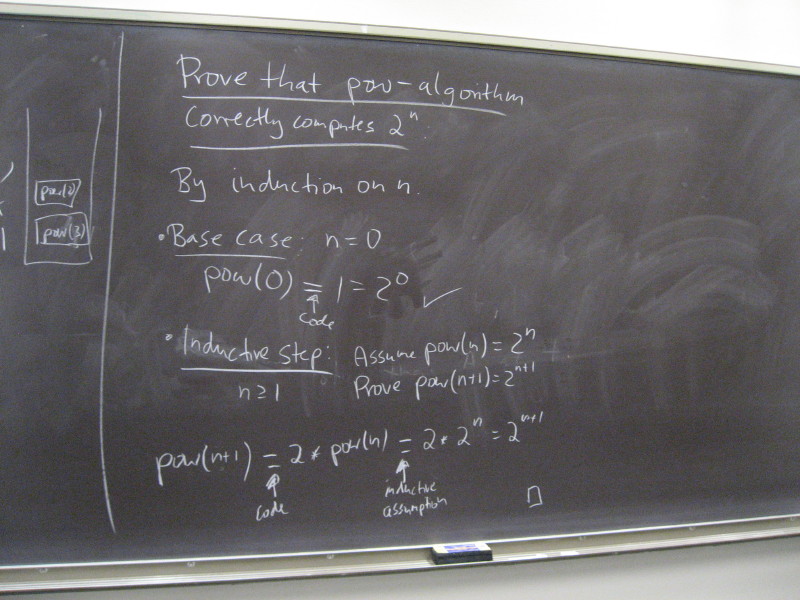 pow(2)
pow(3)
Prove that pow-algorithm
Correctly computes 2ⁿ.
By induction on n.
• Base case: n = 0
pow(0) = 1 = 2⁰ ✓
code
• Inductive Step: Assume pow(n) = 2ⁿ
n ≥ 1 Prove pow(n+1) = 2ⁿ⁺¹
pow(n+1) = 2 * pow(n) = 2 * 2ⁿ = 2ⁿ⁺¹
code inductive
assumption □